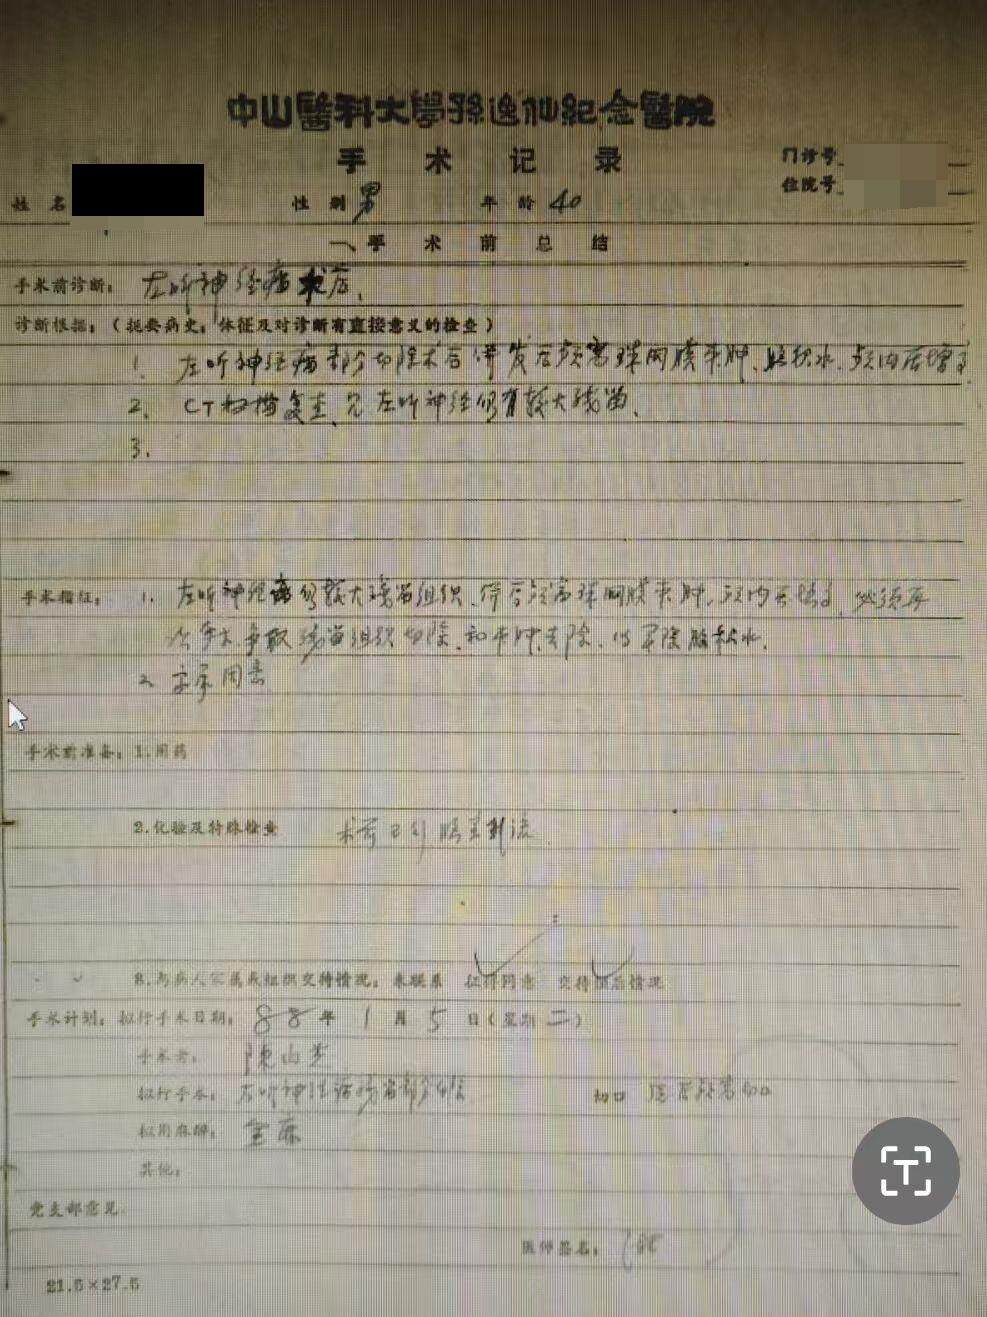 中山醫科大學孫逸仙紀念醫院
手术记录
门诊号
住院号
姓名 性别 男 年龄 40
一、手术前总结
手术前诊断： 左听神经瘤术后.
诊断根据：（扼要病史，体征及对诊断有直接意义的检查）
1. 左听神经瘤部分切除术后并发后颅窝珠网膜囊肿、脑积水、颅内压增高.
2. CT扫描复查、见左听神经仍有较大残留.
3.
手术指征： 1. 左听神经瘤仍较大残留组织、伴后颅窝珠网膜囊肿、颅内压增高、必须再
次手术、争取残留组织切除、和囊肿去除、以解除脑积水.
2 家属同意
手术前准备：1.用药
2.化验及特殊检查 术前已行脑室引流.
3.与病人家属或组织交待情况：未联系 征得同意 交待预后情况
手术计划：拟行手术日期： 88年 1月 5日（星期二）
手术者： 陳
拟行手术： 左听神经瘤残留部分切除 切口 后颅窝切口
拟用麻醉： 全麻
其他：
党支部意见
医师签名：
21.5×27.5